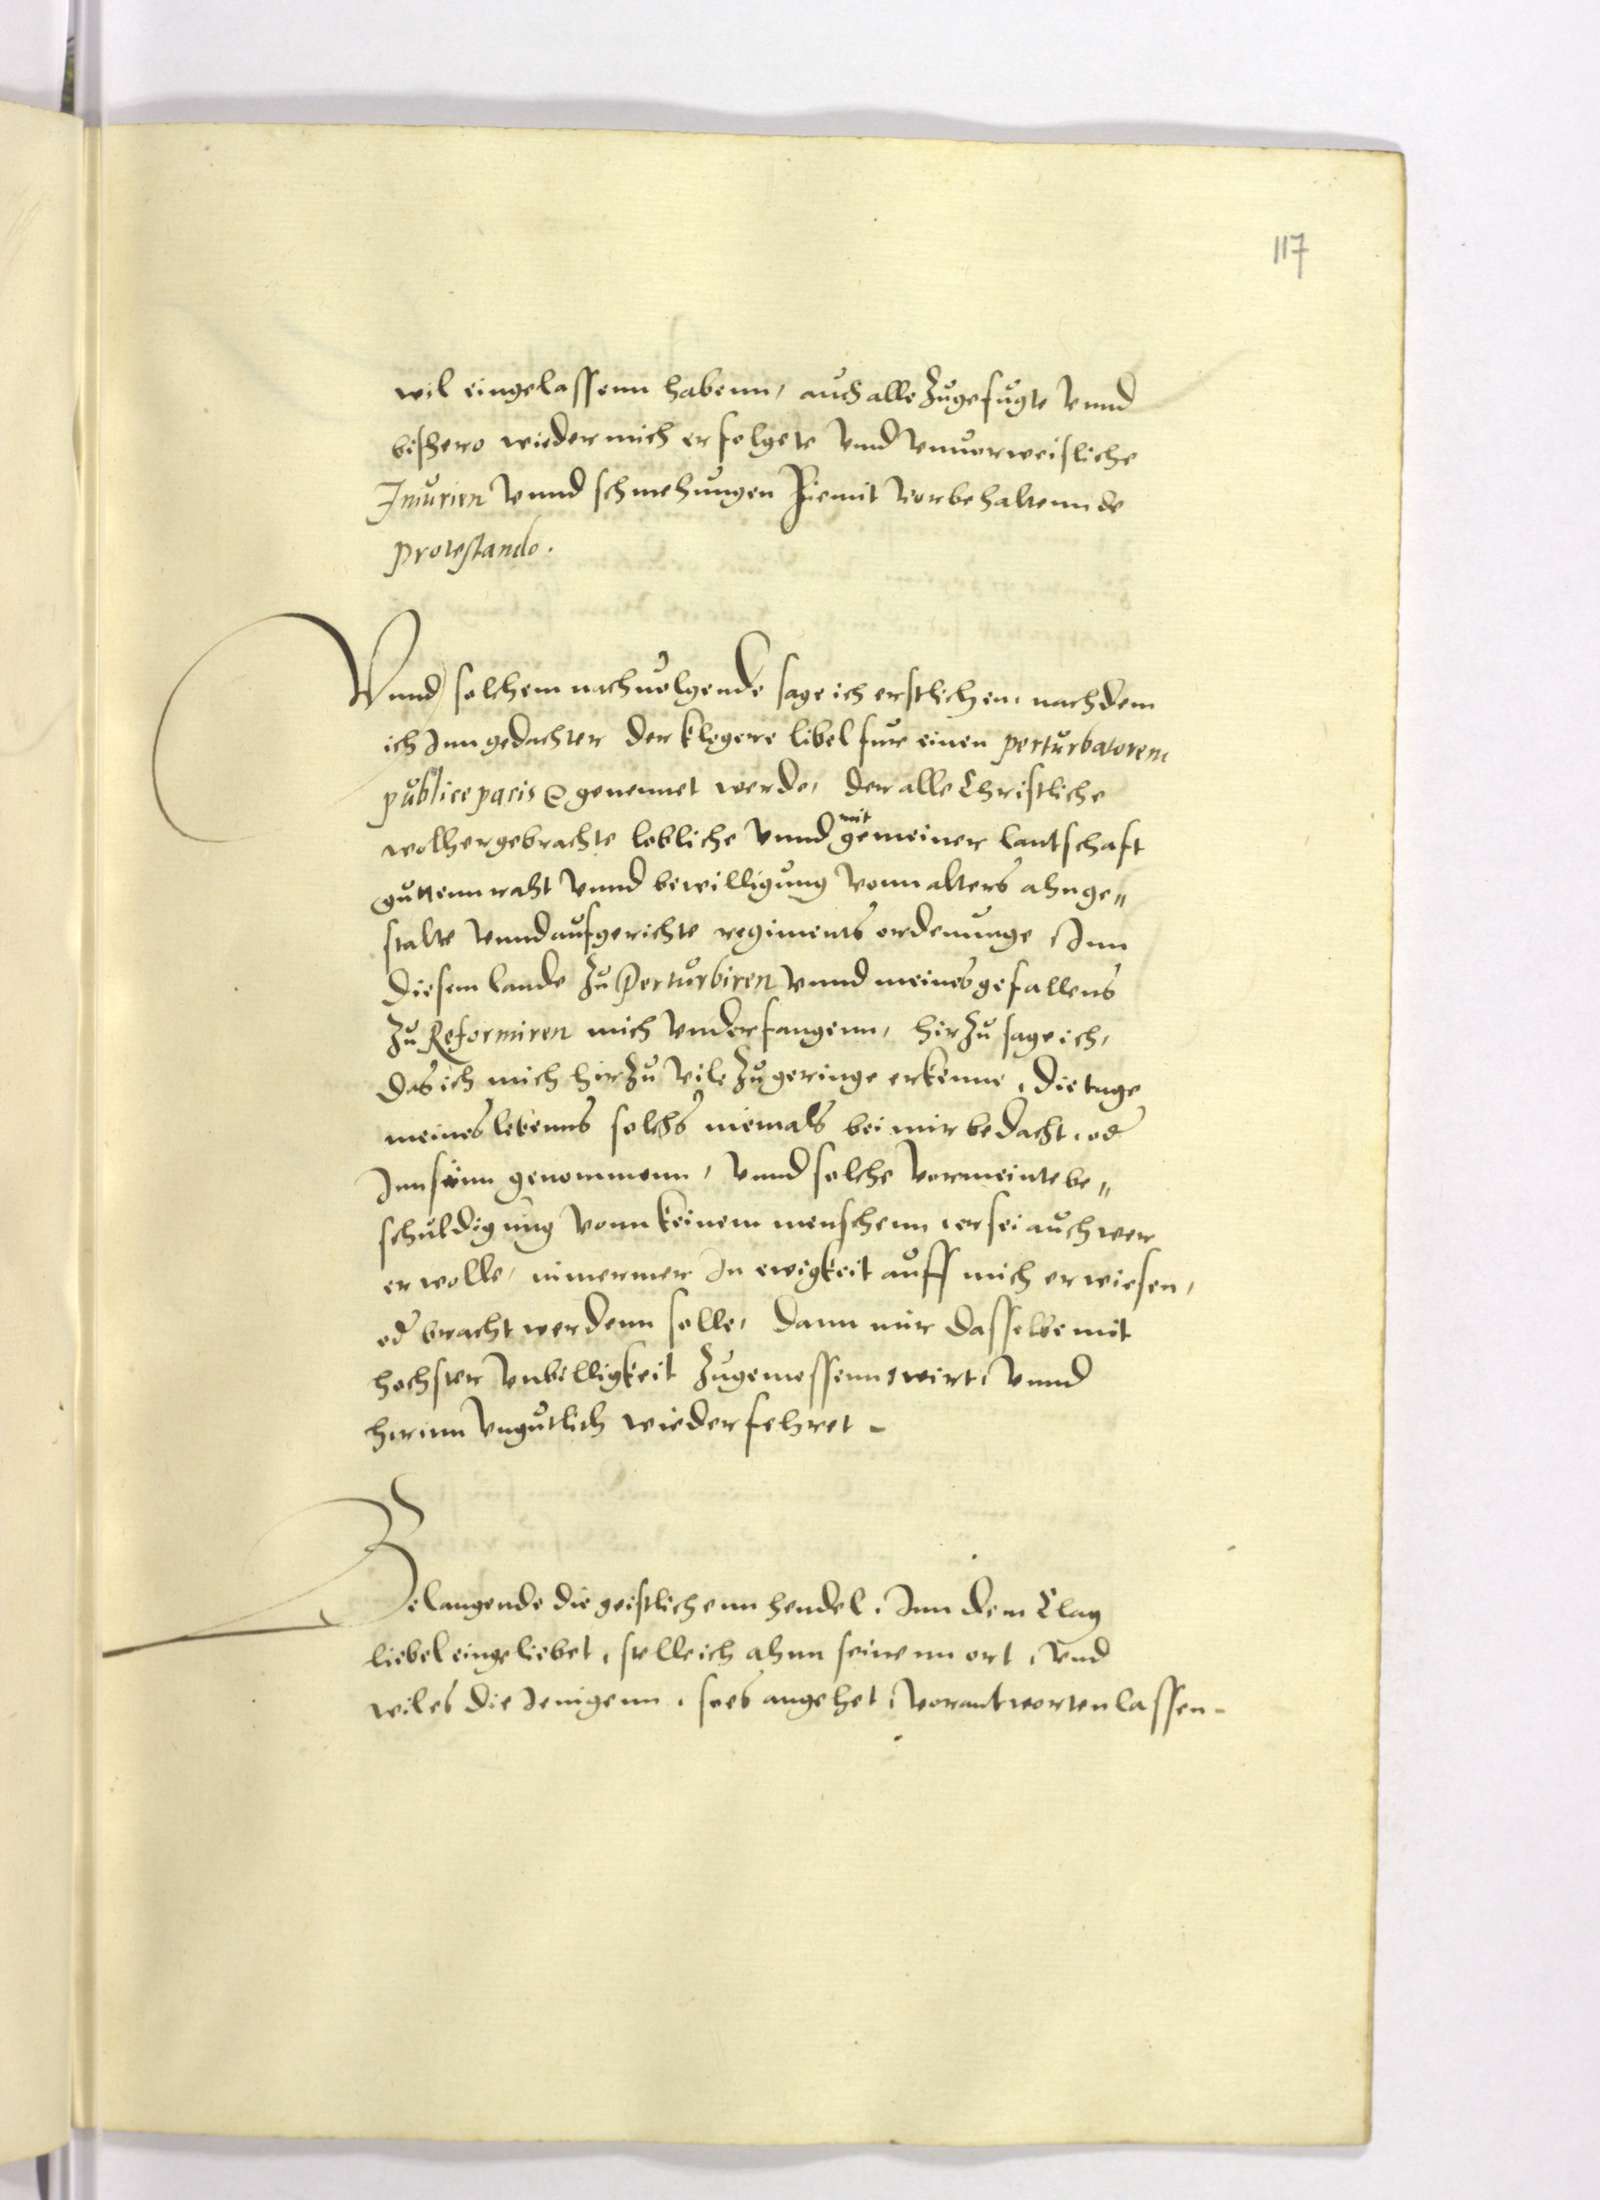 117
wil eingelassenn habenn, auch alle zugefugte vnnd
bishero wieder mich erfolgete vnd vnuorweisliche
Iniurien vnnd schmehungen hiemit vorbehaltennde
protestando.
Vnnd solchem nachuolgende sage ich erstlichen, nachdem
ich Inn gedachter der klegere libel fur einen perturbatorem
publice pacis &c genennet werde, der alle Christliche
wolhergebrachte lobliche vnnd mit gemeiner lantschaft
guttenn raht vnnd bewilligung vonn alters ahnge//
stalte vnnd aufgerichte regiments ordenunge, Inn
diesem lande zu Perturbiren vnnd meines gefallens
zu Reformiren mich vnderfangenn, hirzu sage ich,
das ich mich hirzu vile zu geringe erkenne, die tage
meines lebenns solchs niemals bei mir bedacht, od
Inn sinn genommenn, vnnd solche vormeinte be//
schuldigung vonn keinem menschenn, er sei auch wer
er wolle, nimermer In ewigkeit auff mich erwiesen,
od bracht werdenn solle, dann mir dasselbe mit
hochster vnbilligkeit zugemessenn wirt, vnnd
hirinn vngutlich wiederfehret -
Belangende die geistlichenn hendel, Inn dem Clag
liebel eingeliebet, stelle ich ahnn seinenn ort, vnd
wil es die Jenigenn, so es angehet, vorantworten lassen -